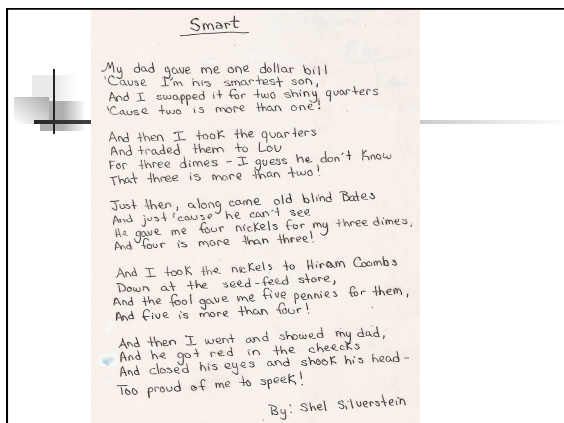 Smart
My dad gave me one dollar bill
'Cause I'm his smartest son,
And I swapped it for two shiny quarters
'Cause two is more than one!
And then I took the quarters
And traded them to Lou
For three dimes - I guess he don't know
That three is more than two!
Just then, along came old blind Bates
And just 'cause he can't see
He gave me four nickels for my three dimes,
And four is more than three!
And I took the nickels to Hiram Coombs
Down at the seed-feed store,
And the fool gave me five pennies for them,
And five is more than four!
And then I went and showed my dad,
And he got red in the cheecks
And closed his eyes and shook his head-
Too proud of me to speek!
By: Shel Silverstein